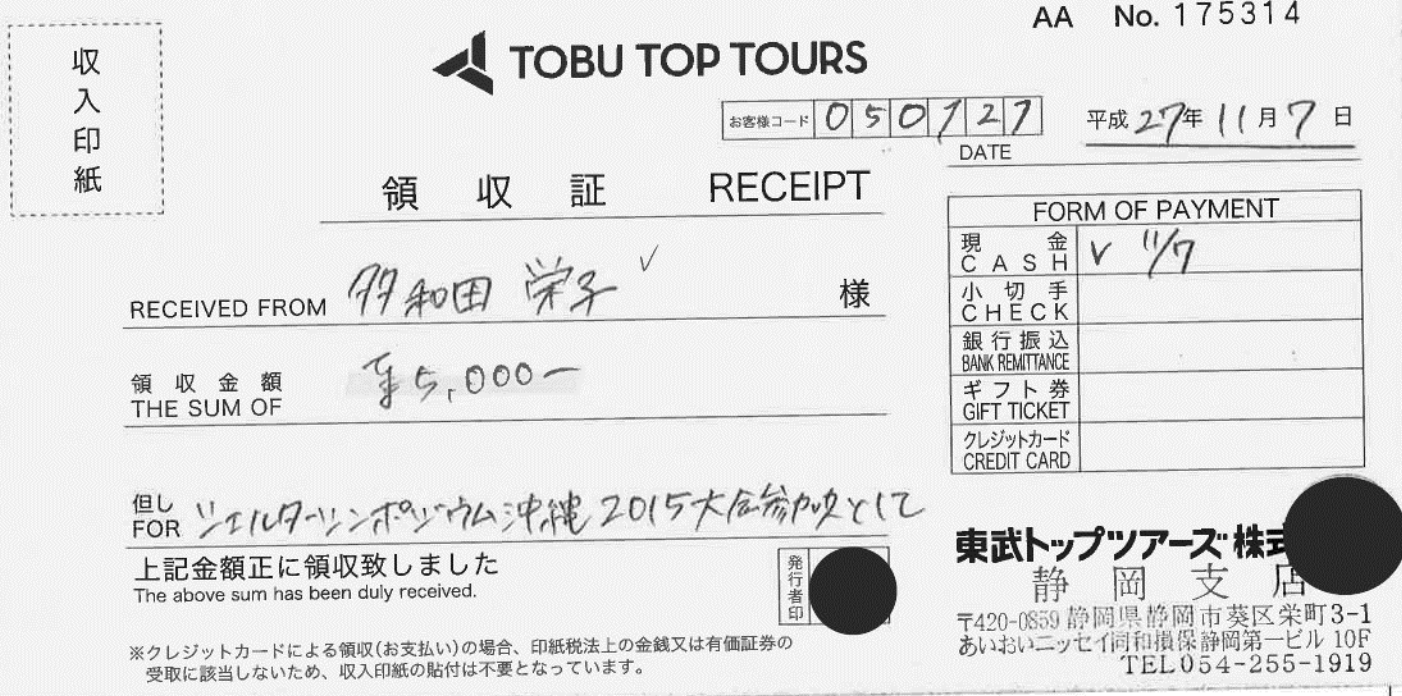 AA No. 175314
収入印紙
TOBU TOP TOURS
お客様コード 050727
平成 27年 11月 7日
DATE
領収証 RECEIPT
RECEIVED FROM 多和田 栄子 様
領収金額
THE SUM OF ¥5,000-
但し
FOR シェルターシンポジウム沖縄2015大会参加費として
上記金額正に領収致しました
The above sum has been duly received.
発行者印
※クレジットカードによる領収(お支払い)の場合、印紙税法上の金銭又は有価証券の
受取に該当しないため、収入印紙の貼付は不要となっています。
FORM OF PAYMENT
現金
CASH ✓ 11/7
小切手
CHECK
銀行振込
BANK REMITTANCE
ギフト券
GIFT TICKET
クレジットカード
CREDIT CARD
東武トップツアーズ株式
静岡支店
〒420-0859 静岡県静岡市葵区栄町3-1
あいおいニッセイ同和損保静岡第一ビル 10F
TEL054-255-1919